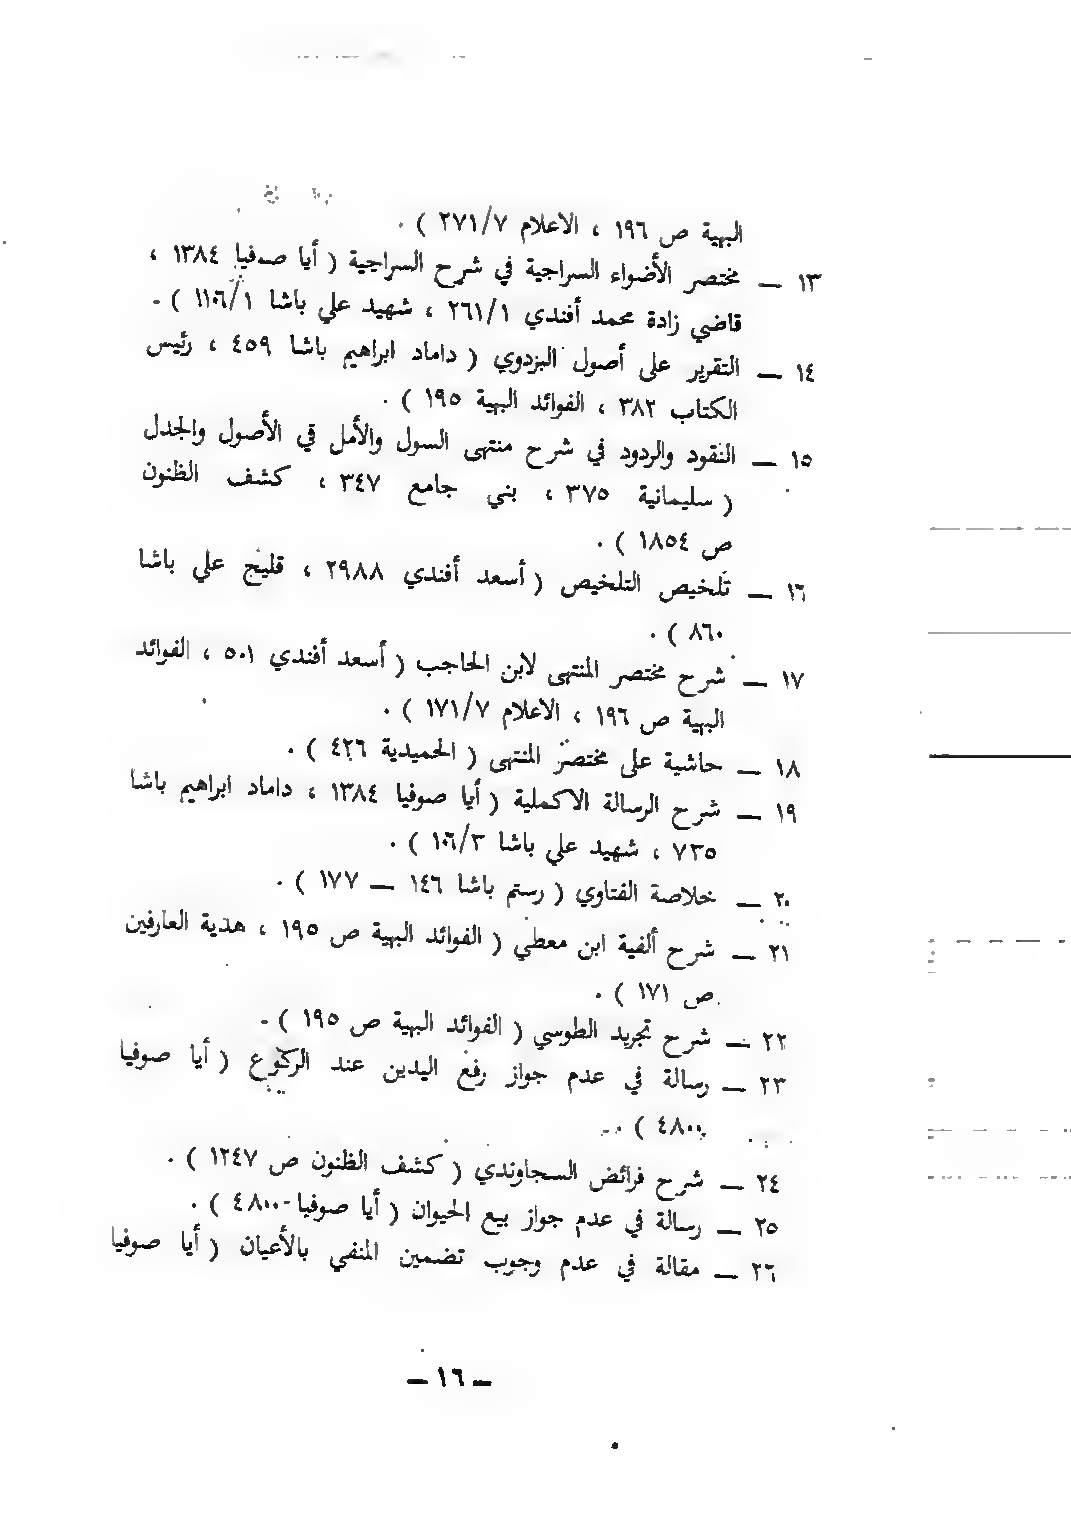 البهية ص ١٩٦ ، الاعلام ٢٧١/٧ ) .
١٣ — مختصر الأضواء السراجية في شرح السراجية ( أيا صوفيا ١٣٨٤ ،
قاضي زادة محمد أفندي ٢٦١/١ ، شهيد علي باشا ١١٠٦/١ ) .
١٤ — التقرير على أصول البزدوي ( داماد ابراهيم باشا ٤٥٩ ، رئيس
الكتاب ٣٨٢ ، الفوائد البهية ١٩٥ ) .
١٥ — النقود والردود في شرح منتهى السول والأمل في الأصول والجدل
( سليمانية ٣٧٥ ، بني جامع ٣٤٧ ، كشف الظنون
ص ١٨٥٤ ) .
١٦ — تلخيص التلخيص ( أسعد أفندي ٢٩٨٨ ، قليج علي باشا
٨٦٠ ) .
١٧ — شرح مختصر المنتهى لابن الحاجب ( أسعد أفندي ٥٠١ ، الفوائد
البهية ص ١٩٦ ، الاعلام ١٧١/٧ ) .
١٨ — حاشية على مختصر المنتهى ( الحميدية ٤٢٦ ) .
١٩ — شرح الرسالة الاكملية ( أيا صوفيا ١٣٨٤ ، داماد ابراهيم باشا
٧٣٥ ، شهيد علي باشا ١٠٦/٣ ) .
٢٠ — خلاصة الفتاوي ( رستم باشا ١٤٦ — ١٧٧ ) .
٢١ — شرح ألفية ابن معطي ( الفوائد البهية ص ١٩٥ ، هدية العارفين
ص ١٧١ ) .
٢٢ — شرح تجريد الطوسي ( الفوائد البهية ص ١٩٥ ) .
٢٣ — رسالة في عدم جواز رفع اليدين عند الركوع ( أيا صوفيا
٤٨٠٠ ) .
٢٤ — شرح فرائض السجاوندي ( كشف الظنون ص ١٢٤٧ ) .
٢٥ — رسالة في عدم جواز بيع الحيوان ( أيا صوفيا ٤٨٠٠ ) .
٢٦ — مقالة في عدم وجوب تضمين المنفي بالأعيان ( أيا صوفيا
— ١٦ —